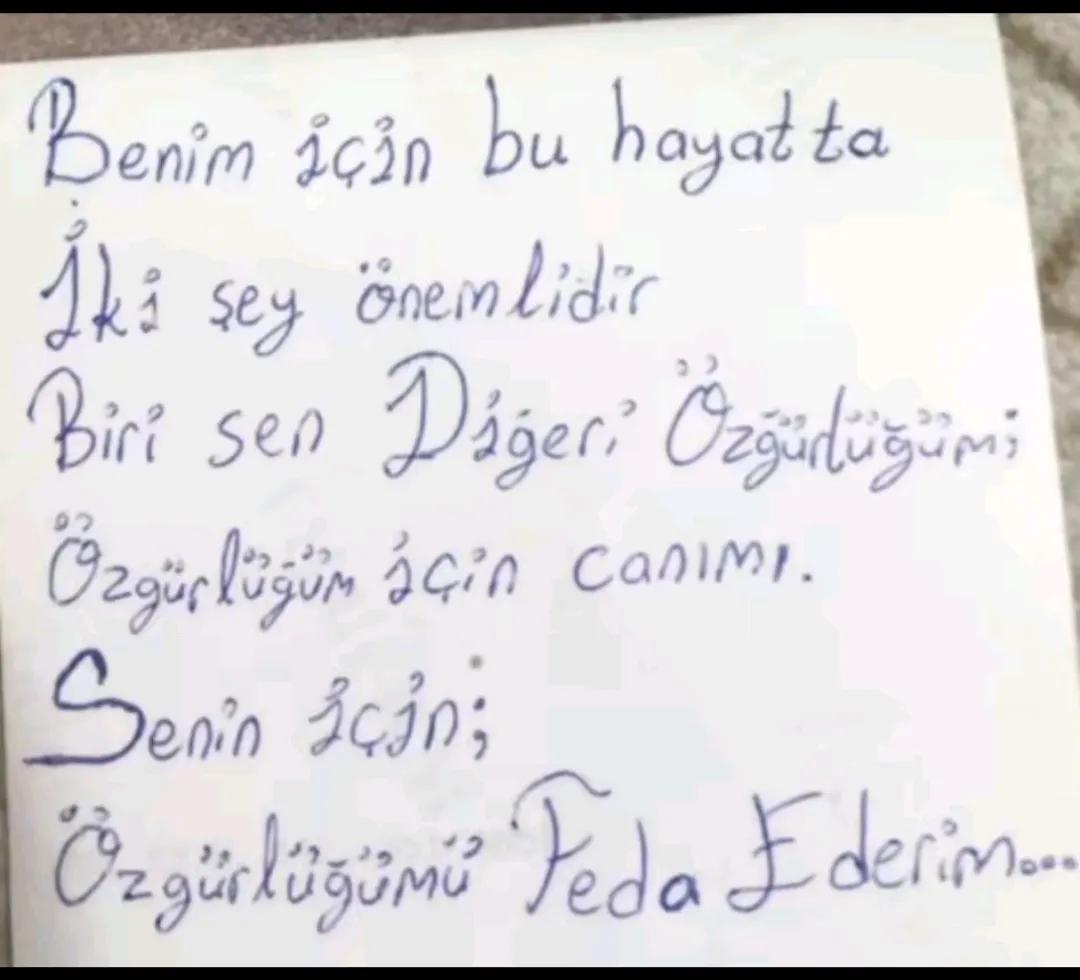 Benim için bu hayatta
İki şey önemlidir
Biri sen Diğeri Özgürlüğüm;
Özgürlüğüm için canımı.
Senin için;
Özgürlüğümü Feda Ederim....